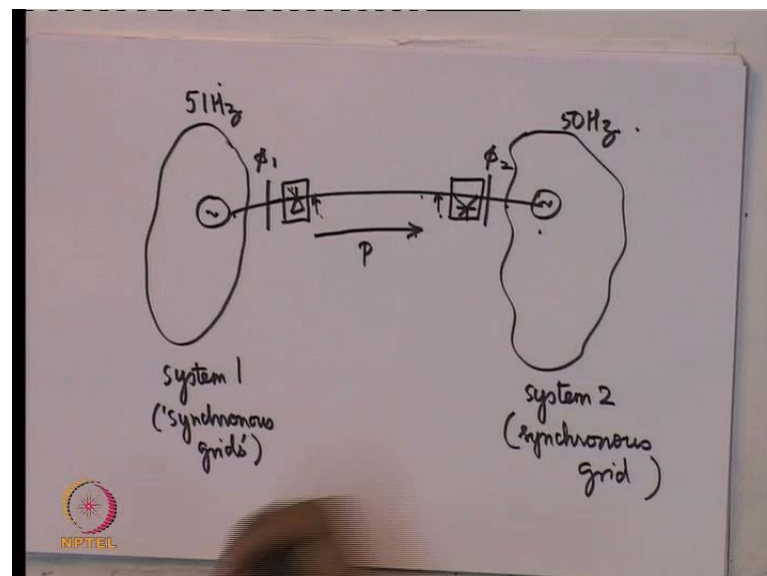 51Hz
50Hz.
φ1
φ2
P
system 1
('synchronous
grids')
system 2
(synchronous
grid)
NPTEL